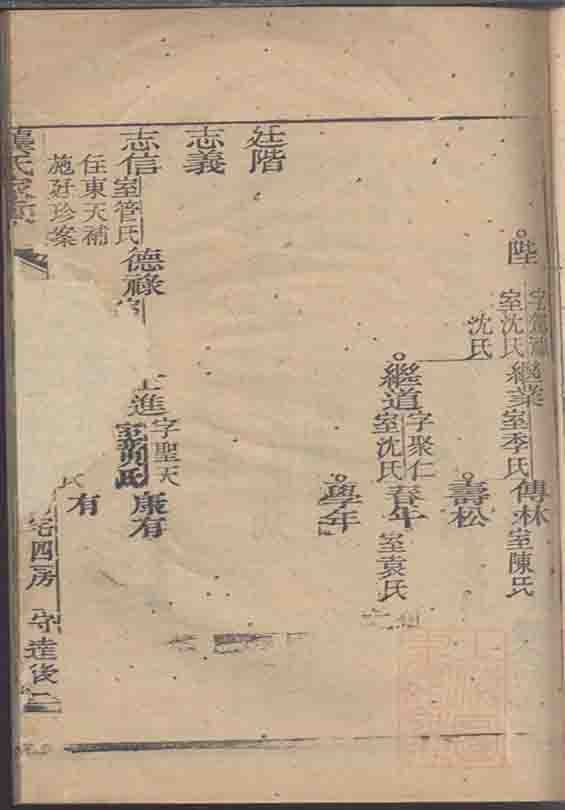 陛
室沈氏
沈氏
繼業
室李氏
傳林
室陳氏
壽松
繼道
字聚仁
室沈氏
春年
室袁氏
學年
廷階
志義
志信
室管氏
住東天補
施廷珍案
德祿
室
進
字聖天
室黃氏
康有
有
氏
宅四房
守達後二